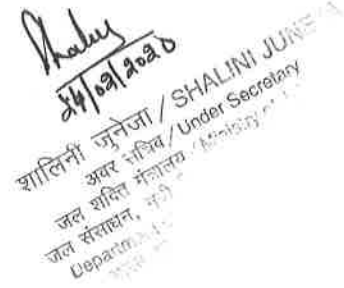 Shalini
24/02/2020
शालिनी जुनेजा / SHALINI JUNEJA
अवर सचिव / Under Secretary
जल शक्ति मंत्रालय / Ministry of
जल संसाधन, नदी
Department